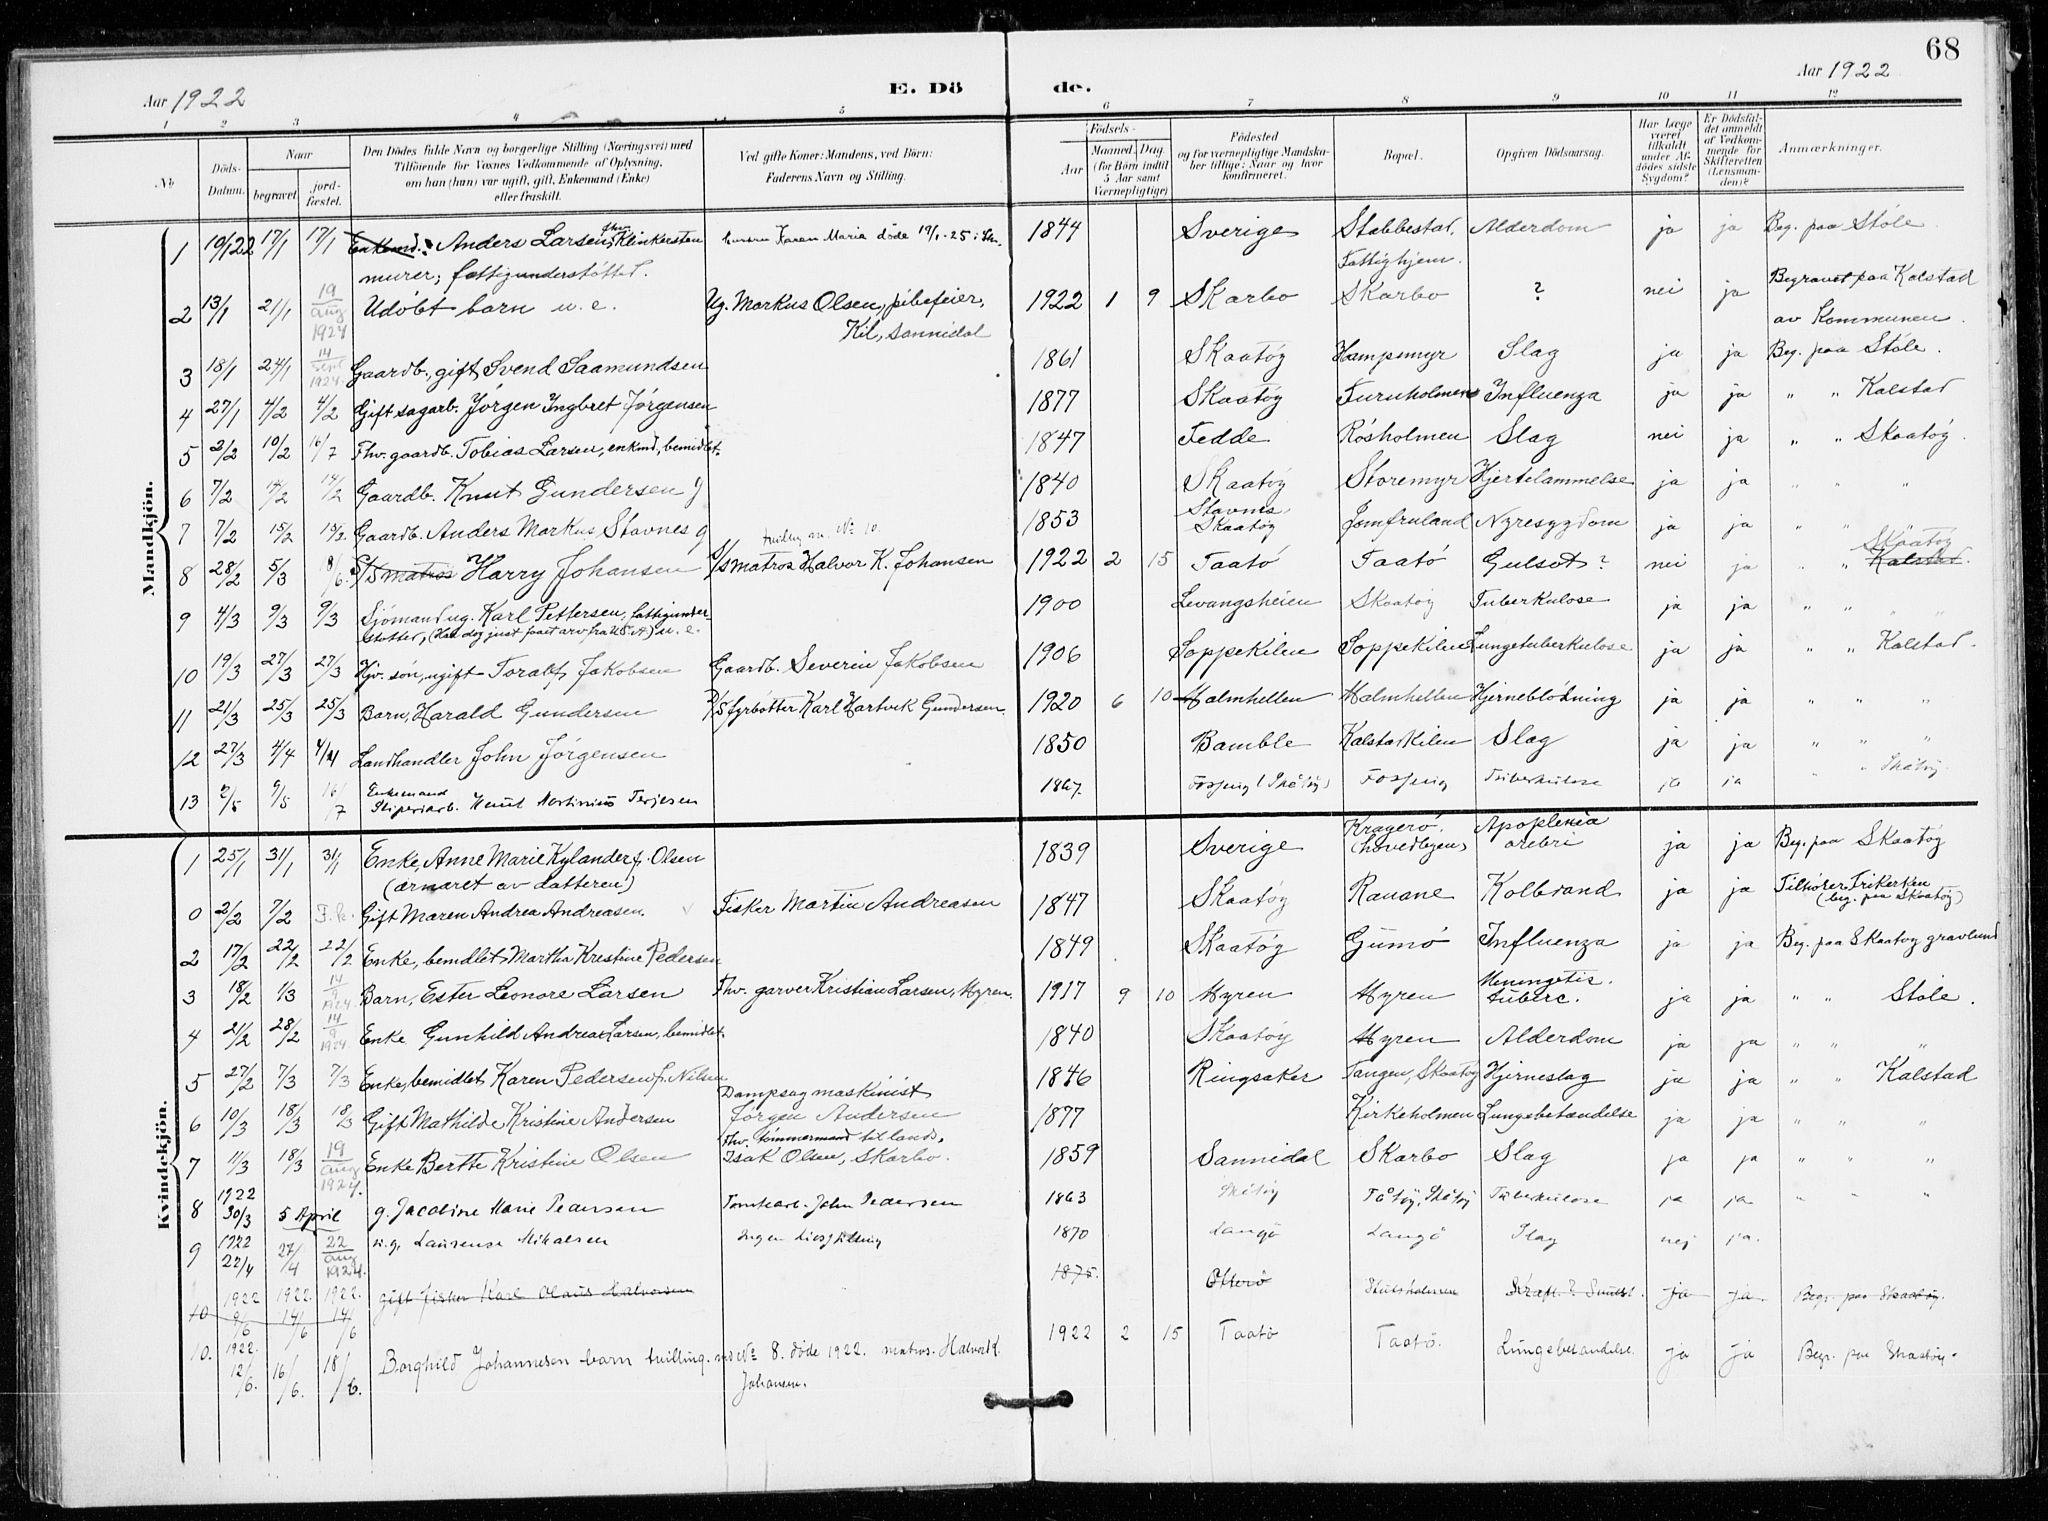 68
Aar 1922
E. Dö
de.
Aar 1922
1 2 3 4 5 6 7 8 9 10 11 12
No
Döds-
Datum.
Naar
begravet
jord-
fæstet.
Den Dödes fulde Navn og borgerlige Stilling (Næringsvei) med
Tilföiende for Voxnes Vedkommende af Oplysning,
om han (hun) var ugift, gift, Enkemand (Enke)
eller fraskilt.
Ved gifte Koner: Mandens, ved Börn:
Faderens Navn og Stilling.
Födsels-
Aar
Maaned. Dag.
(for Börn indtil
5 Aar samt
Værnepligtige)
Födested
og for værnepligtige Mandska-
ber tillige: Naar og hvor
konfirmeret.
Bopæl.
Opgiven Dödsaarsag.
Har Læge
været
tilkaldt
under Af-
dödes sidste
Sygdom?
Er Dödsfal-
det anmeldt
af Vedkom-
mende for
Skifteretten
(Lensman-
den)?
Anmærkninger.
Mandkjön.
1 10/1 22 17/1 17/1 Enkemd. Anders Larsen Klinkersten hustru Karen Maria döde 1844 Sverige Stabbestad, Alderdom ja ja Beg. paa Støle
murer; fattigunderstøttet. Fattighjem.
2 13/1 21/1 19/aug 1924 Udöbt barn u. e. Ug. Markus Olsen, pibefeier, 1922 1 9 Skarbo Skarbo ? nei ja Begravet paa Kalstad
Kil, Sannidal av Kommunen.
3 18/1 24/1 14/sept 1924 Gaardb., gift Svend Saamundsen 1861 Skaatøy Hampemyr Slag ja ja Beg. paa Støle.
4 27/1 4/2 4/2 Gift sagarb. Jørgen Ingbret Jørgensen 1877 Skaatøy Furuholmen Influenza ja ja " " Kalstad
5 2/2 10/2 16/7 Fhv. gaardb. Tobias Larsen, enkmd, bemidlet. 1847 Fedde Rösholmen Slag nei ja " " Skaatøy.
6 7/2 14/2 14/2 Gaardb. Knut Gundersen g 1840 Skaatøy Storemyr Hjertelammelse ja ja " " "
7 7/2 15/2 15/2 Gaardb. Anders Markus Stavnes g 1853 Stavnes Skaatøy Jomfruland Nyresygdom ja ja " " "
tvilling av No 10.
8 28/2 5/3 18/6 S/S matros Harry Johansen S/S matros Halvor K. Johansen 1922 2 15 Taatö Taatö Gulsot? nei ja " " Kalstad. Skaatøy
9 4/3 9/3 9/3 Sjömand ug. Karl Pettersen, fattigunder- 1900 Levangsheien Skaatøy Tuberkulose ja ja " " "
støttet, (Har dog just faaet arv fra U.S.A.) u. e.
10 19/3 27/3 27/3 Hjv. søn, ugift Toralf Jakobsen Gaardb. Severin Jakobsen 1906 Soppekilen Soppekilen Lungetuberkulose ja ja " " Kalstad.
11 21/3 25/3 25/3 Barn, Harald Gundersen D/S fyrbötter Karl Hartvik Gundersen. 1920 6 10 Malmhellen Malmhellen Hjerneblödning ja ja " " "
12 27/3 4/4 4/4 Landhandler John Jørgensen 1850 Bamble Kalstadkilen Slag ja ja " " "
13 2/5 9/5 16/7 Enkemand
Sliperiarb. Knut Martinius Terjesen 1867. Fossing (Skåtøy) Fossing Tuberkulose ja ja " " Skåtøy.
Kvindekjön.
1 25/1 31/1 31/1 Enke, Anne Marie Kylander f. Olsen 1839 Sverige Kragerö (hovedbyen) Apoplexia cerebri ja ja Beg. paa Skaatøy
(ernæret av datteren)
0 2/2 7/2 F. k. Gift Maren Andrea Andreasen. Fisker Martin Andreasen 1847 Skaatøy Rauane Kolbrand ja ja Tilhörer Frikirken
(beg. paa Skaatøy)
2 17/2 22/2 22/2 Enke, bemidlet Martha Kristine Pedersen 1849 Skaatøy Gumö Influenza ja ja Beg. paa Skaatøy gravlund
3 18/2 1/3 14/9 1924 Barn, Ester Leonore Larsen Fhv. garver Kristian Larsen, Myren. 1917 9 10 Myren Myren Meningetis tuberc. ja ja " " Støle.
4 21/2 28/2 14/9 1924 Enke Gunhild Andrea Larsen, bemidlet. 1840 Skaatøy Myren Alderdom ja ja " " "
5 27/2 7/3 7/3 Enke, bemidlet Karen Pedersen f. Nilsen 1846 Ringsaker Tangen, Skaatøy Hjerneslag ja ja " " Kalstad
Dampsag maskinist
6 10/3 18/3 18/3 Gift Mathilde Kristine Andersen Jørgen Andersen 1877 Kirkeholmen Lungebetændelse ja ja " " "
Fhv. tömmermand til lands,
7 11/3 18/3 19/aug 1924. Enke Berthe Kristine Olsen Isak Olsen, Skarbo. 1859 Sannidal Skarbo Slag ja ja " " "
8 1922 30/3 5 April g. Jacobine Marie Pedersen Tomtearb. John Pedersen 1863 Skåtøy Tåtøy, Skåtøy Tuberkulose ja ja " " "
9 1922 22/4 27/4 22/aug 1924. u. g. Laurense Mikalsen Ingen livsstilling 1870 Langö Langö Slag nej ja.
10 1922 9/6 1922. 14/6 1922. 14/6 gift fisker Karl Olaus Halvorsen 1875. Otterö Kræft? ja ja Begr. paa Skaatöy.
10. 1922. 12/6. 16/6. 18/6. Borghild Johannesen barn tvilling. med No 8. döde 1922. matros. Halvor K. 1922 2 15 Taatö Taatö. Lungebetændelse ja ja Begr. paa Skaatöy.
Johansen.